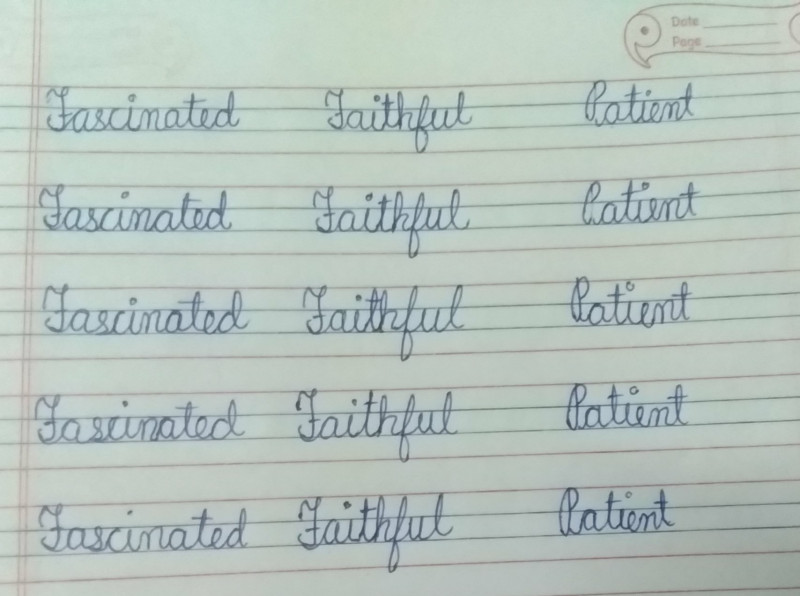 Date
Page
Fascinated Faithful Patient
Fascinated Faithful Patient
Fascinated Faithful Patient
Fascinated Faithful Patient
Fascinated Faithful Patient